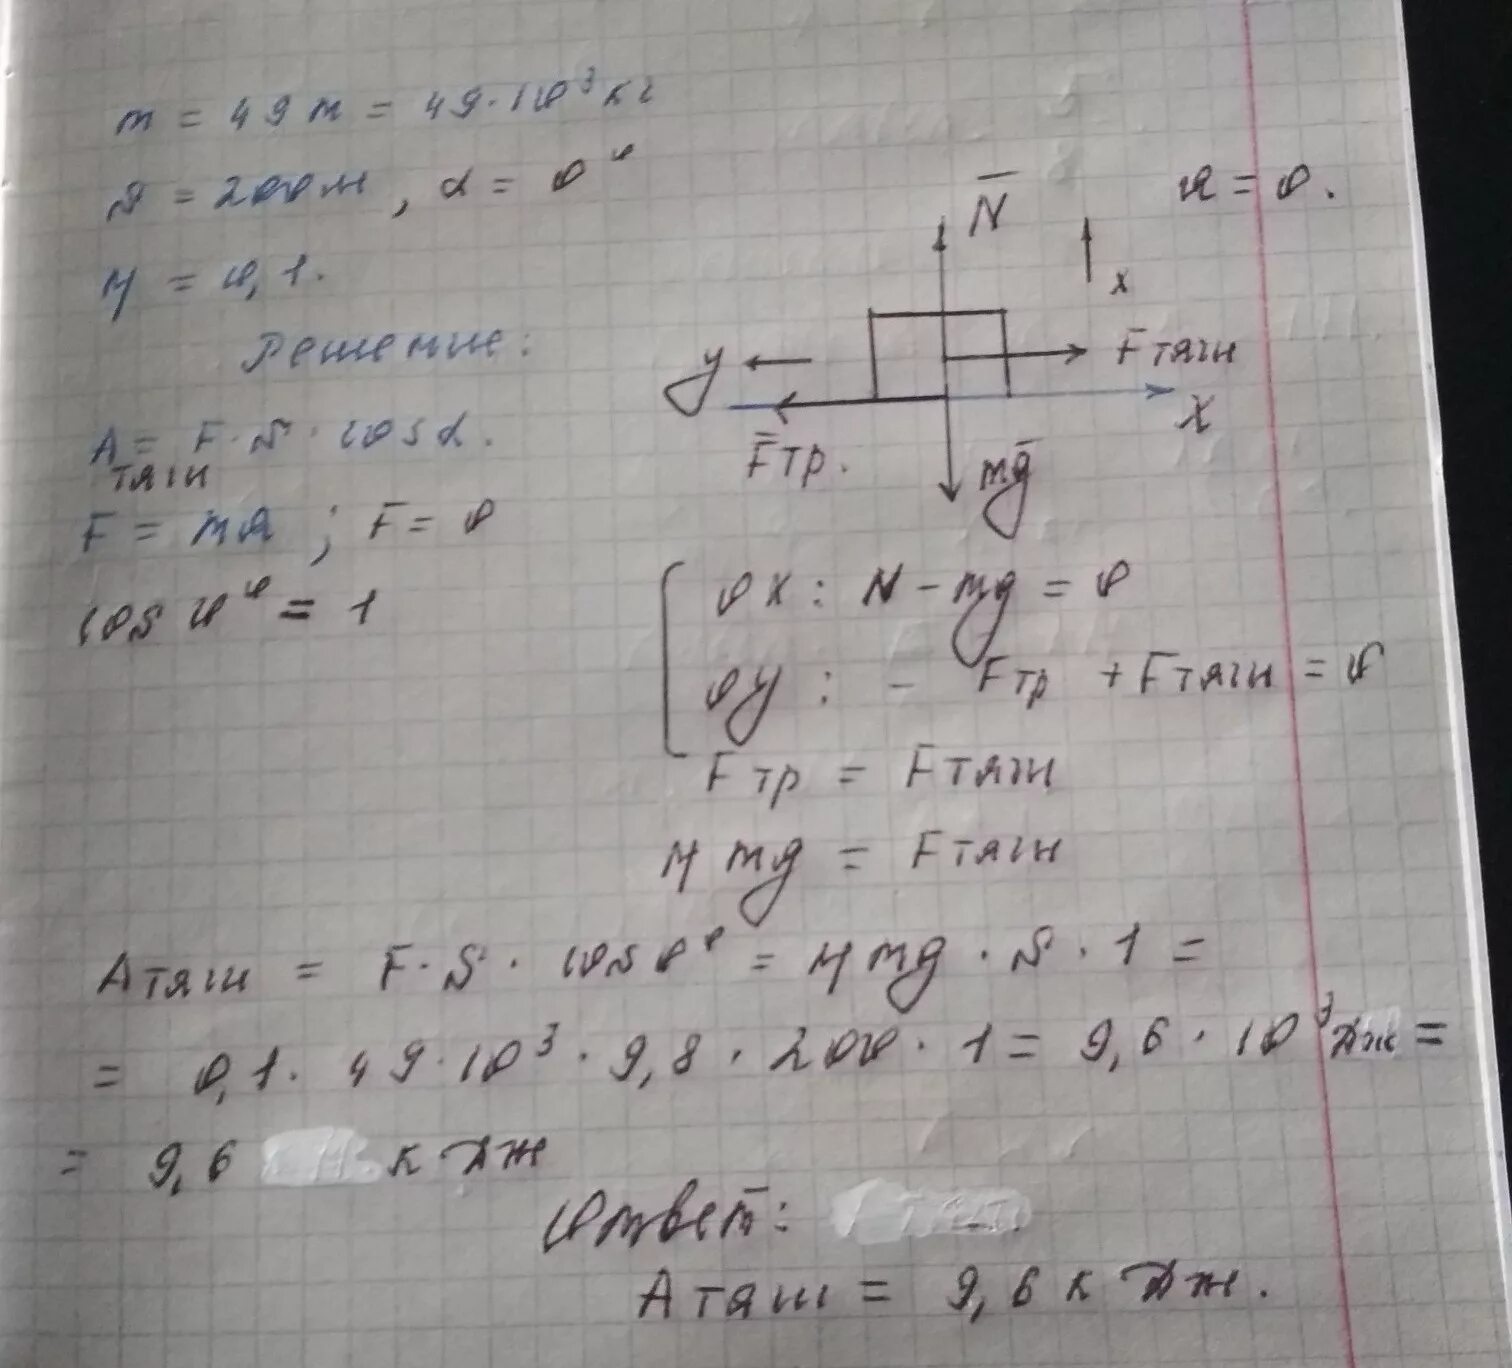 m = 49 т = 49·10³ кг
S = 200 м, α = 0°
μ = 0,1.
Решение:
A = F·S·cos α.
тяги
F = ma ; F = 0
cos 0° = 1
a = 0.
N
x
y
Fтяги
X
Fтр.
mg
OX: N − mg = 0
OY: − Fтр + Fтяги = 0
Fтр = Fтяги
μ mg = Fтяги
Aтяги = F·S·cos 0° = μ mg·S·1 =
= 0,1·49·10³·9,8·200·1 = 9,6·10³ Дж =
= 9,6 кДж
Ответ:
Aтяги = 9,6 кДж.